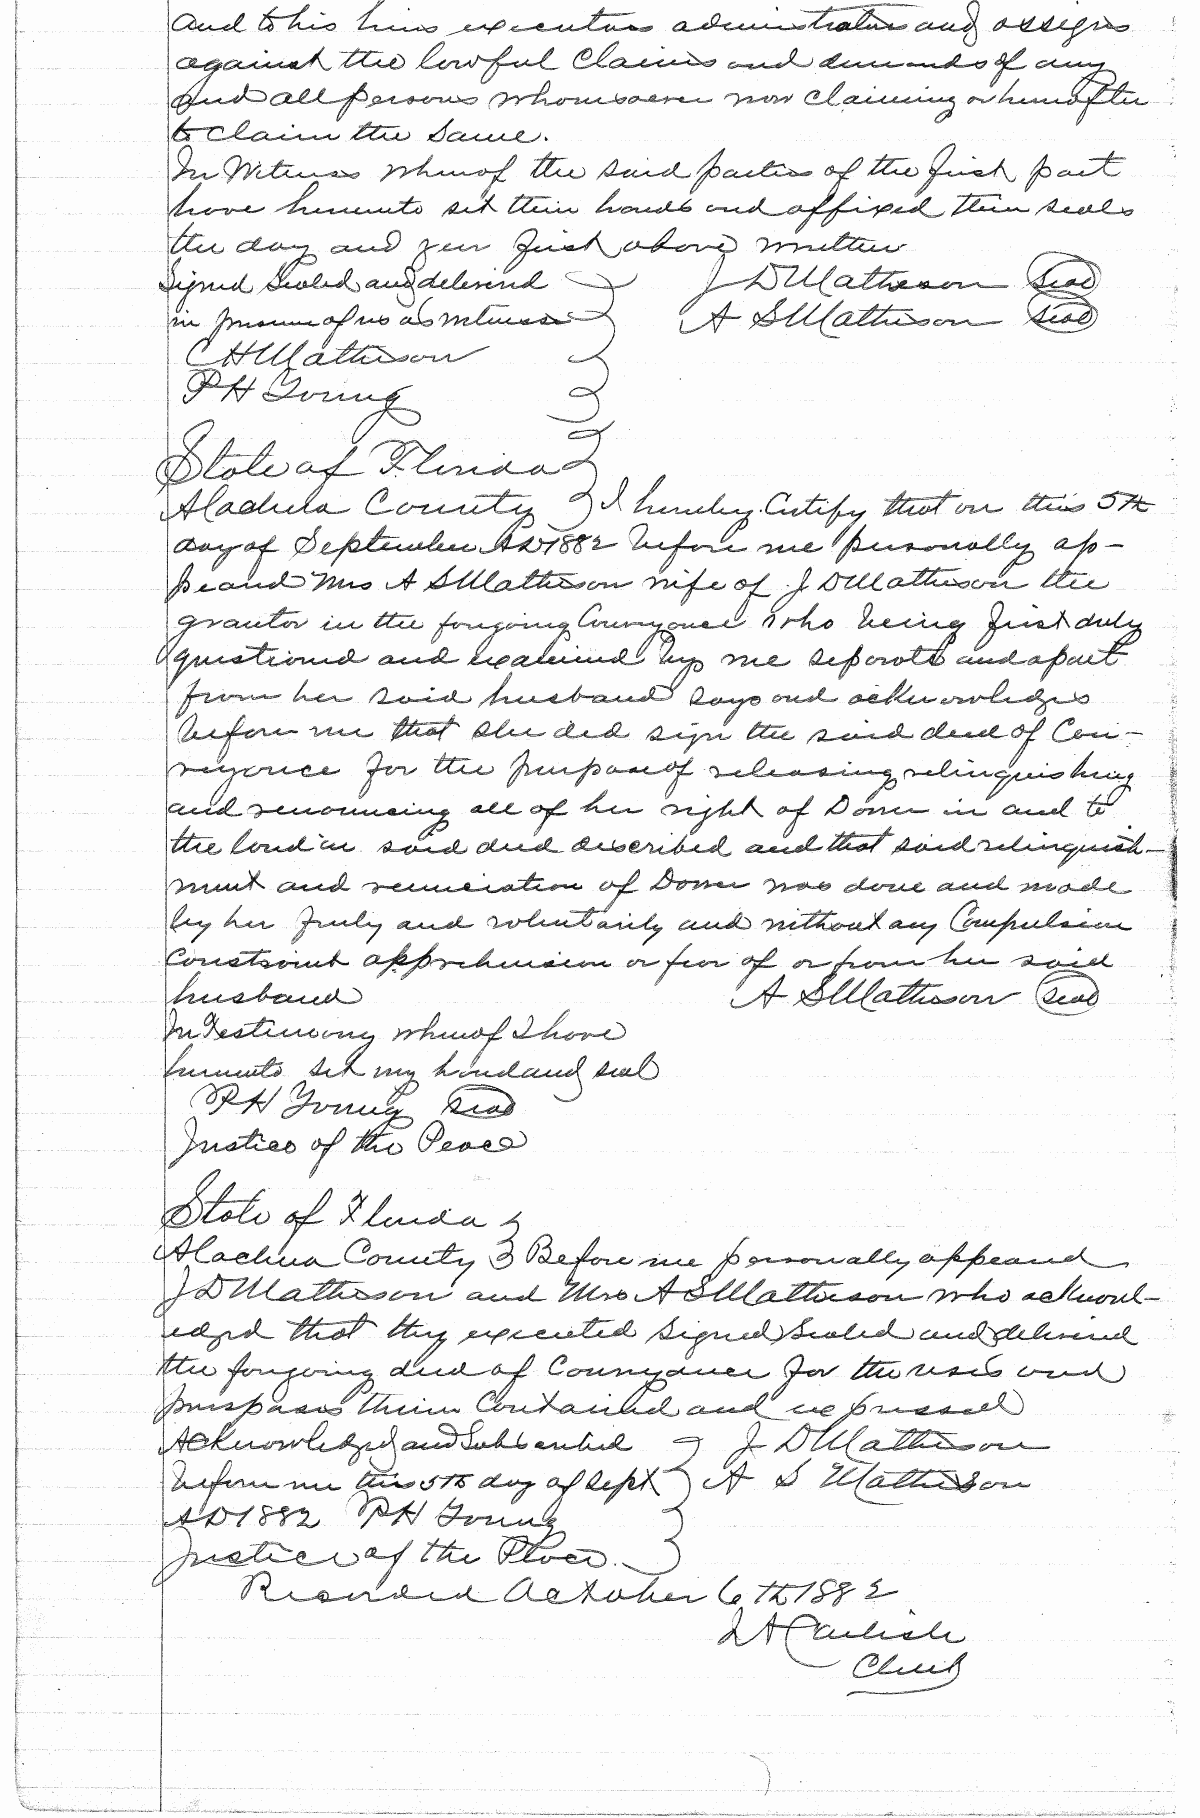 and to his heirs executors administrators and assigns
against the lawful Claims and demands of any
and all persons whomsoever now claiming or hereafter
to claim the same.
In Witness whereof the said parties of the first part
have hereunto set their hands and affixed their seals
the day and year first above written
Signed Sealed and delivered J D Matheson Seal
in presence of us as witnesses A S Matheson Seal
C H Matheson
P H Young
State of Florida
Alachua County I hereby Certify that on this 5th
day of September AD 1882 before me personally ap-
peared Mrs A S Matheson wife of J D Matheson the
grantor in the foregoing Conveyance who being first duly
questioned and examined by me separate and apart
from her said husband says and acknowledges
before me that she did sign the said deed of Con-
veyance for the purpose of releasing relinquishing
and renouncing all of her right of Dower in and to
the land in said deed described and that said relinquish-
ment and renunciation of Dower was done and made
by her freely and voluntarily and without any Compulsion
constraint apprehension or fear of or from her said
husband A S Matheson Seal
In Testimony whereof I have
hereunto set my hand and seal
P H Young Seal
Justice of the Peace
State of Florida
Alachua County Before me personally appeared
J D Matheson and Mrs A S Matheson who acknowl-
edged that they executed signed Sealed and delivered
the foregoing deed of Conveyance for the uses and
purposes therein Contained and expressed
Acknowledged and Subscribed J D Matheson
before me this 5th day of Sept A S Matheson
AD 1882 P H Young
Justice of the Peace.
Recorded October 6th 1882
J A Carlisle
Clerk